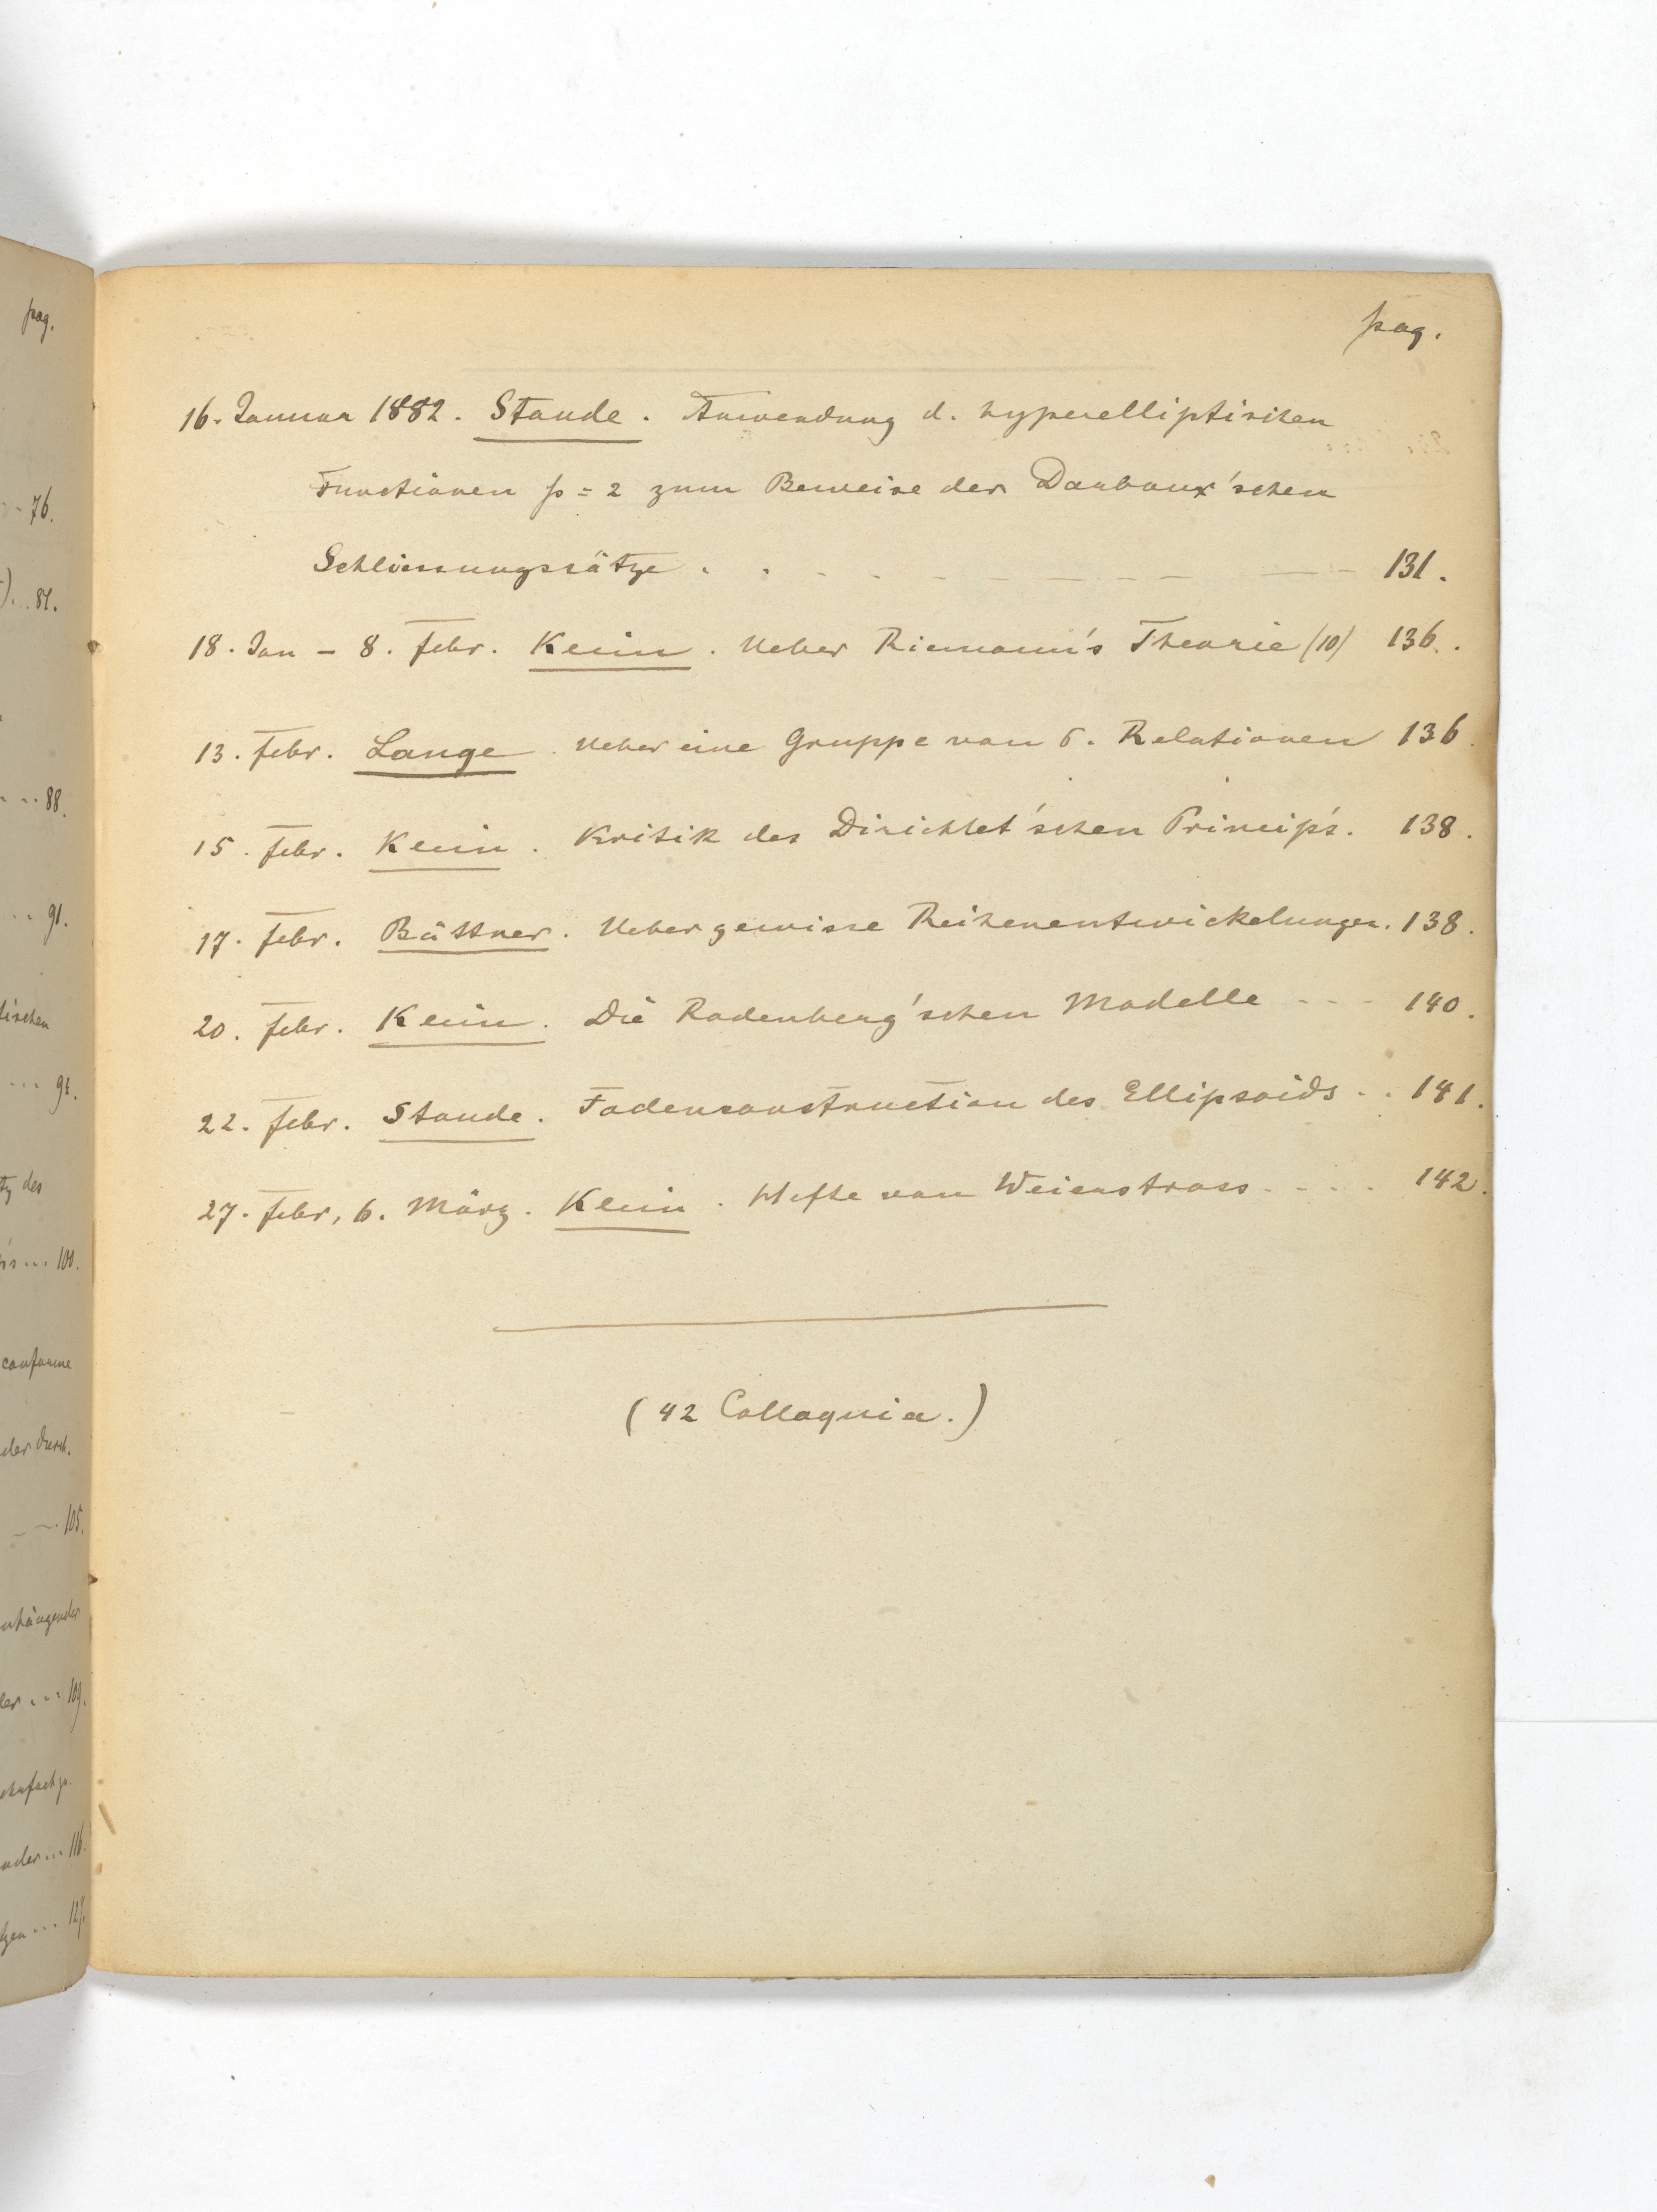 pag.
76.
81.
88.
91.
tischen
94.
tz des
100.
conforme
der Durch.
105.
nhängender
109.
116.
pag.
16. Januar 1882. Staude. Anwendung d. hyperelliptischen
Functionen p = 2 zum Beweise der Darboux'schen
Schliessungssätze . . - - - - - - - - - 131.
18. Jan - 8. Febr. Klein. Ueber Riemann's Theorie (10) 136.
13. Febr. Lange. Ueber eine Gruppe von σ. Relationen 136
15. Febr. Klein. Kritik des Dirichlet'schen Princip's. 138.
17. Febr. Büttner. Ueber gewisse Reihenentwickelungen. 138.
20. Febr. Klein. Die Rodenberg'schen Modelle - - - 140.
22. Febr. Staude. Fadenconstruction des Ellipsoids . . 141.
27. Febr, 6. März. Klein. Hefte von Weierstrass. - - . 142.
(42 Colloquia.)